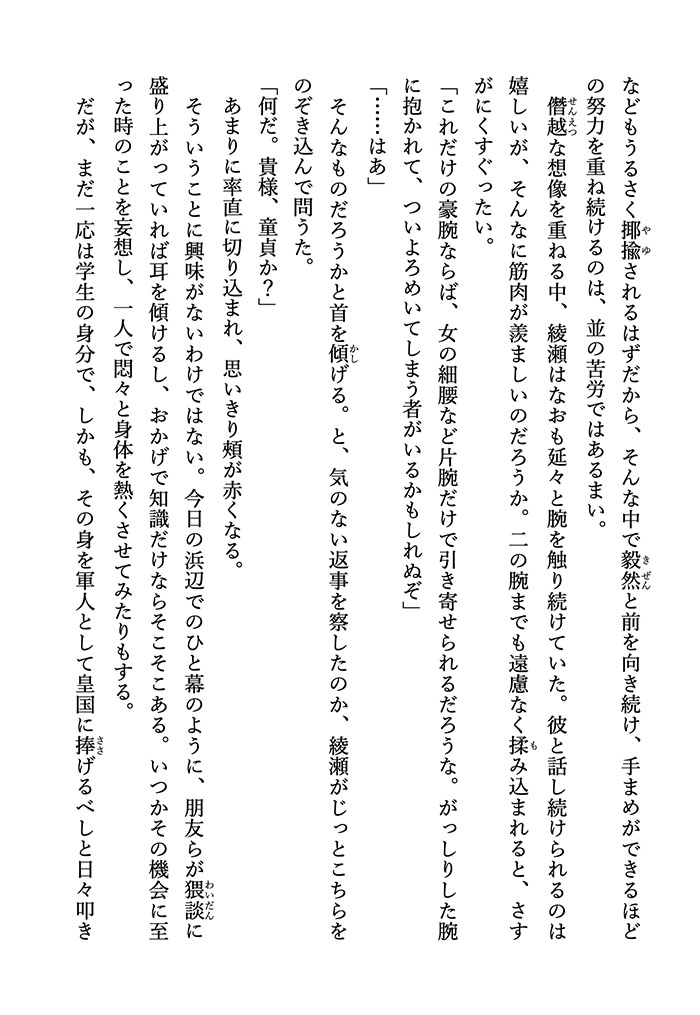 などもうるさく揶揄されるはずだから、そんな中で毅然と前を向き続け、手まめができるほど
の努力を重ね続けるのは、並の苦労ではあるまい。
僭越な想像を重ねる中、綾瀬はなおも延々と腕を触り続けていた。彼と話し続けられるのは
嬉しいが、そんなに筋肉が羨ましいのだろうか。二の腕までも遠慮なく揉み込まれると、さす
がにくすぐったい。
「これだけの豪腕ならば、女の細腰など片腕だけで引き寄せられるだろうな。がっしりした腕
に抱かれて、ついよろめいてしまう者がいるかもしれぬぞ」
「……はあ」
そんなものだろうかと首を傾げる。と、気のない返事を察したのか、綾瀬がじっとこちらを
のぞき込んで問うた。
「何だ。貴様、童貞か？」
あまりに率直に切り込まれ、思いきり頰が赤くなる。
そういうことに興味がないわけではない。今日の浜辺でのひと幕のように、朋友らが猥談に
盛り上がっていれば耳を傾けるし、おかげで知識だけならそこそこある。いつかその機会に至
った時のことを妄想し、一人で悶々と身体を熱くさせてみたりもする。
だが、まだ一応は学生の身分で、しかも、その身を軍人として皇国に捧げるべしと日々叩き